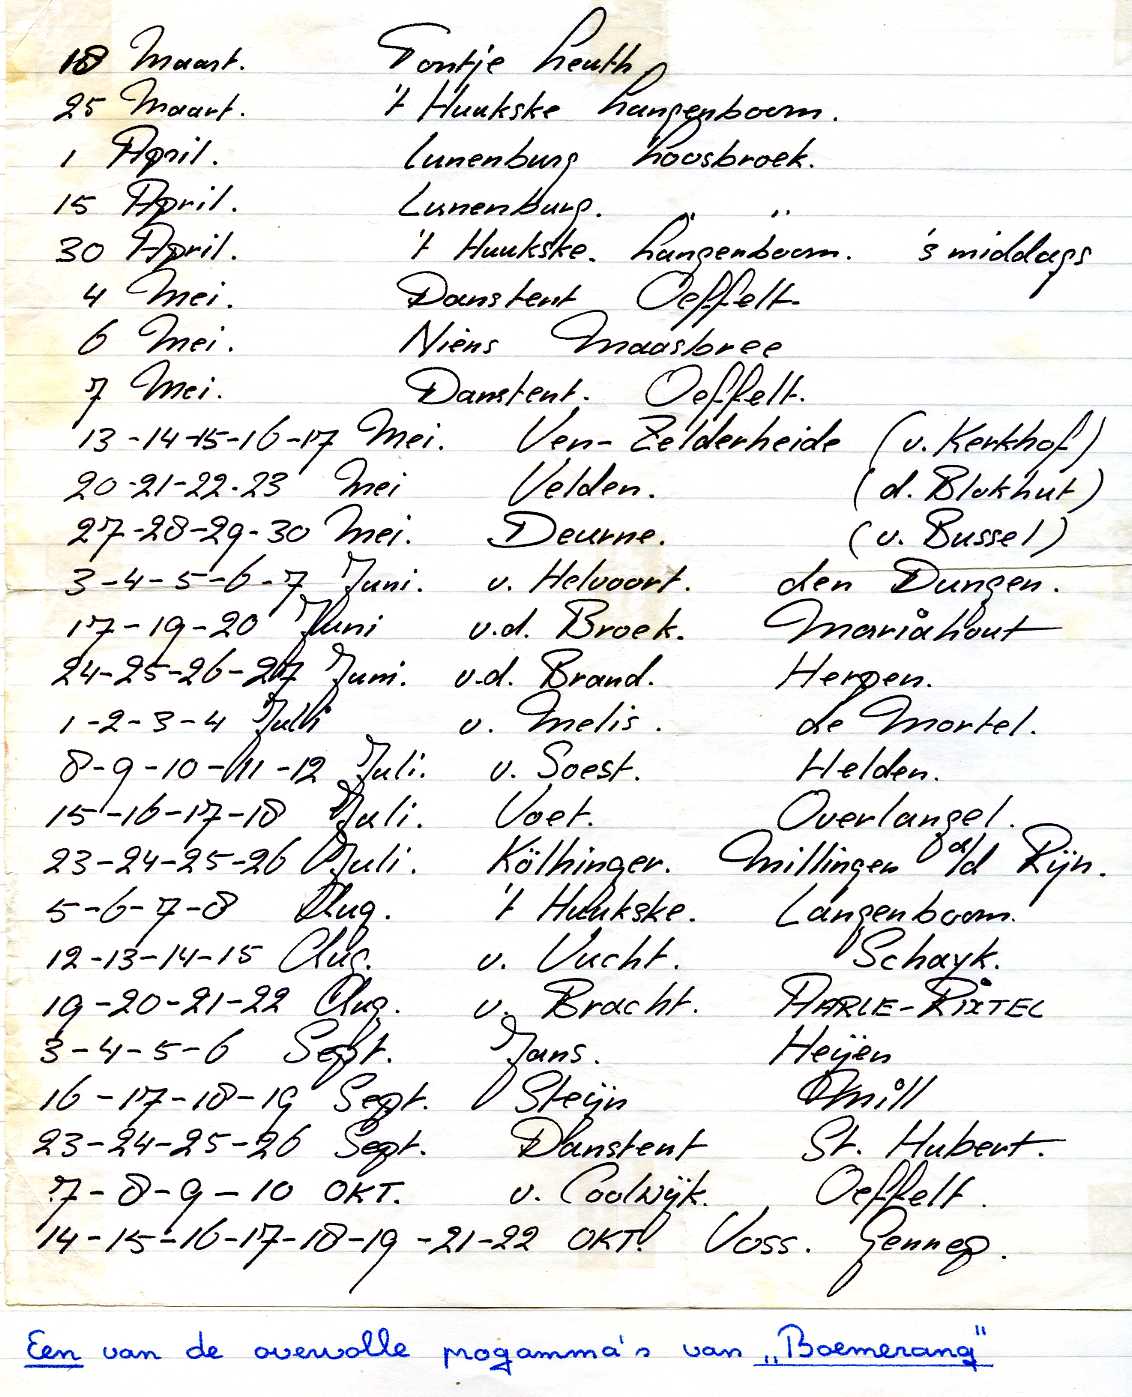 18 Maart. Tontje Leuth
25 Maart. 't Huukske Langenboom.
1 April. Lunenburg Loosbroek.
15 April. Lunenburg. " "
30 April. 't Huukske. Langenboom. 's middags
4 Mei. Danstent Oeffelt.
6 Mei. Niens Maasbree
7 Mei. Danstent. Oeffelt.
13-14-15-16-17 Mei. Ven-Zelderheide (v. Kerkhof)
20-21-22-23 Mei Velden. (d. Blokhut)
27-28-29-30 Mei. Deurne. (v. Bussel)
3-4-5-6-7 Juni. v. Helvoort. den Dungen.
17-19-20 Juni v.d. Broek. Mariahout
24-25-26-27 Juni. v.d. Brand. Herpen.
1-2-3-4 Juli v. Melis. de Mortel.
8-9-10-11-12 Juli. v. Soest. Helden.
15-16-17-18 Juli. Voet. Overlangel.
23-24-25-26 Juli. Kölhinger. Millingen a/d Rijn.
5-6-7-8 Aug. 't Huukske. Langenboom.
12-13-14-15 Aug. v. Vucht. Schayk.
19-20-21-22 Aug. v. Bracht. AARLE-RIXTEL
3-4-5-6 Sept. Jans. Heijen
16-17-18-19 Sept. Steijn Mill
23-24-25-26 Sept. Danstent St. Hubert.
7-8-9-10 OKT. v. Coolwijk. Oeffelt.
14-15-16-17-18-19-21-22 OKT. Voss. Gennep.
Een van de overvolle progamma's van „Boemerang"